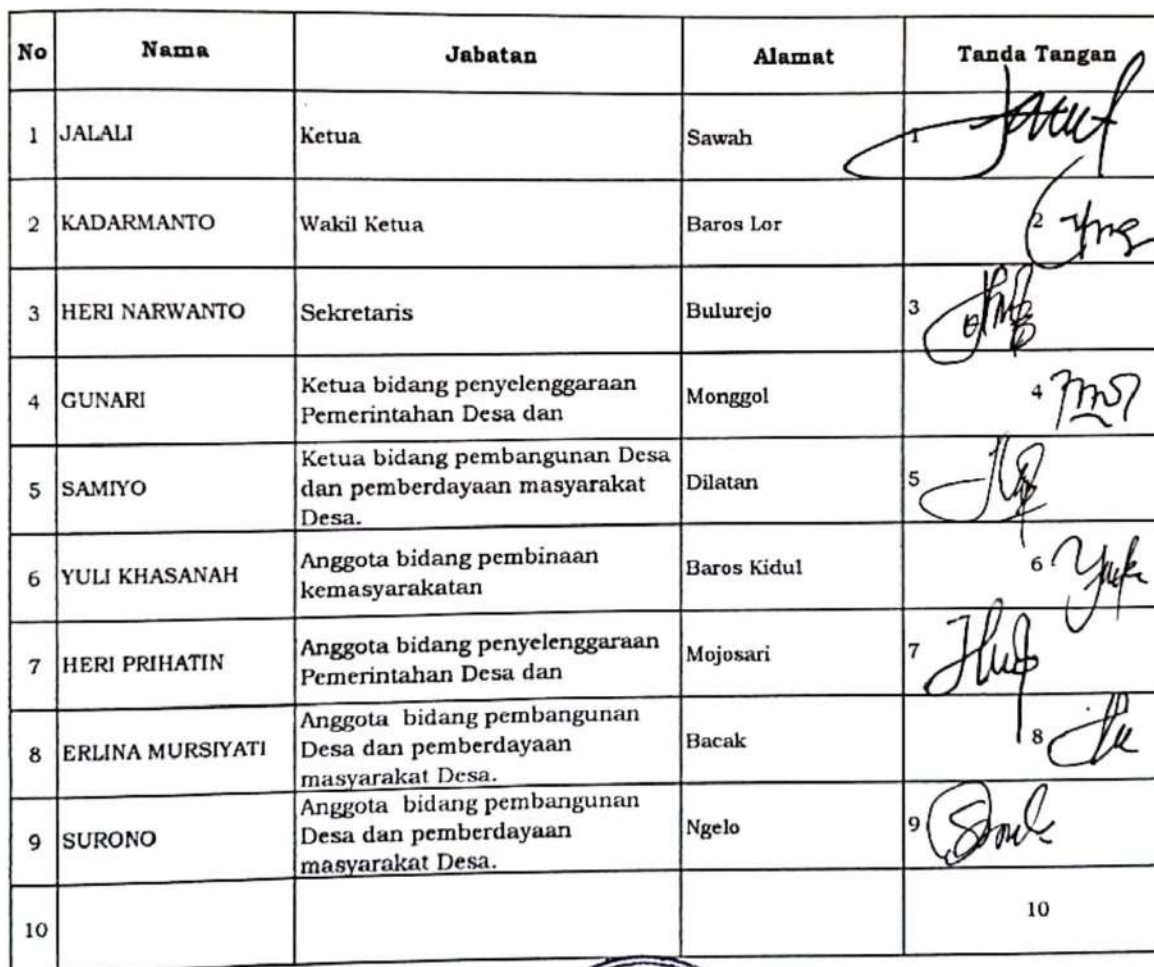 No Nama Jabatan Alamat Tanda Tangan
1 JALALI Ketua Sawah 1
2 KADARMANTO Wakil Ketua Baros Lor 2
3 HERI NARWANTO Sekretaris Bulurejo 3
4 GUNARI Ketua bidang penyelenggaraan
Pemerintahan Desa dan Monggol 4
5 SAMIYO Ketua bidang pembangunan Desa
dan pemberdayaan masyarakat
Desa. Dilatan 5
6 YULI KHASANAH Anggota bidang pembinaan
kemasyarakatan Baros Kidul 6
7 HERI PRIHATIN Anggota bidang penyelenggaraan
Pemerintahan Desa dan Mojosari 7
8 ERLINA MURSIYATI Anggota bidang pembangunan
Desa dan pemberdayaan
masyarakat Desa. Bacak 8
9 SURONO Anggota bidang pembangunan
Desa dan pemberdayaan
masyarakat Desa. Ngelo 9
10 10